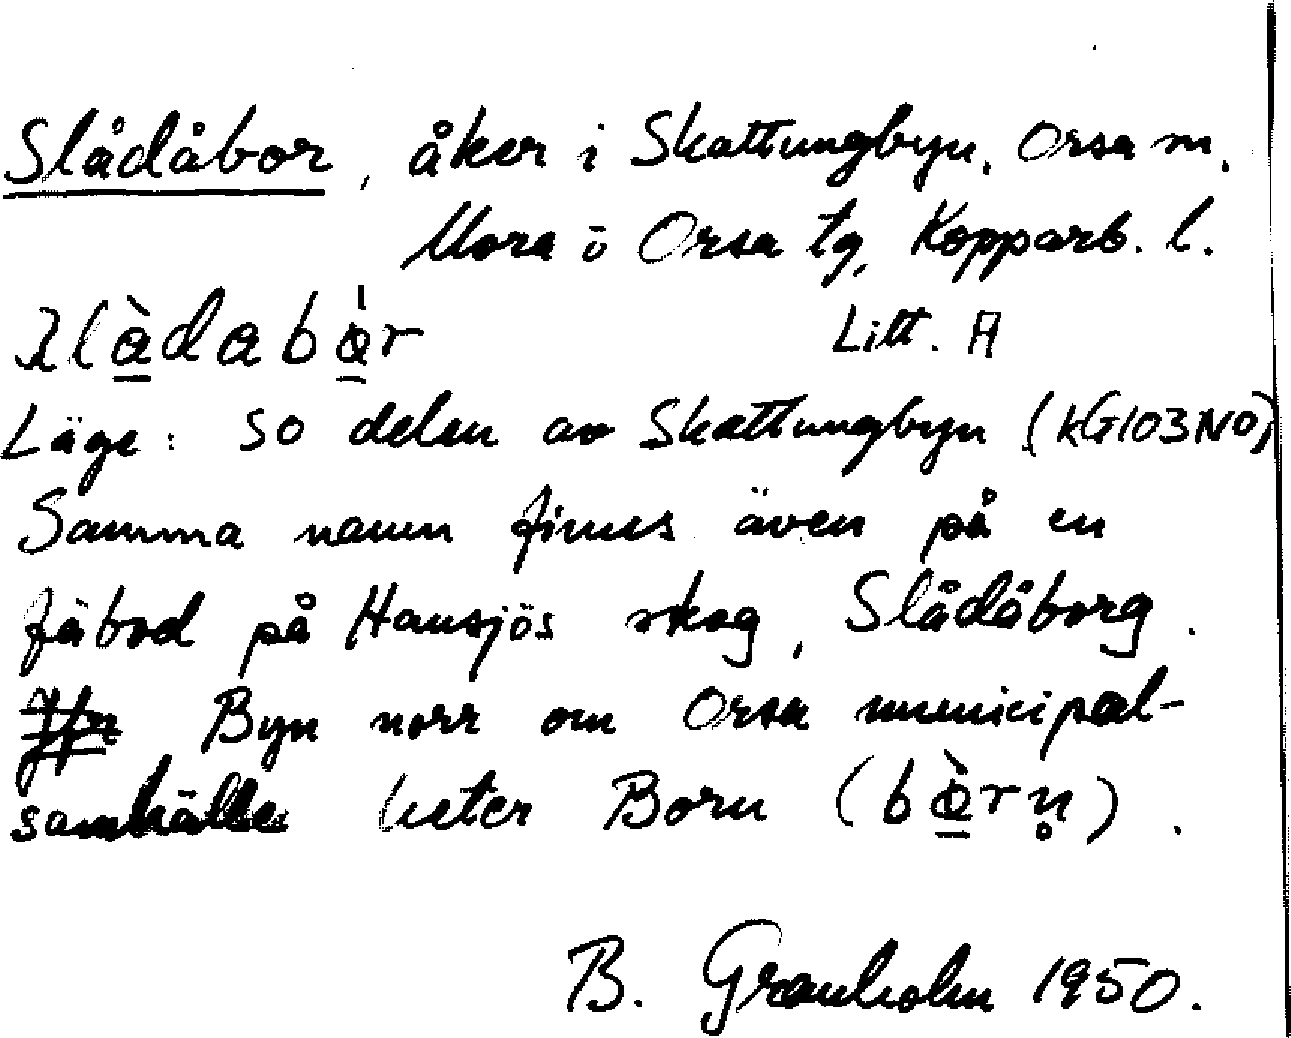 Slådåbor, åker i Skattungbyn, Orsa sn.
Mora o Orsa tg, Kopparb. l.
Litt. A
Läge: SO delen av Skattungbyn (kG103NO)
Samma namn finns även på en
fäbod på Hansjös skog, Slådåborg.
Jfr Byn norr om Orsa municipal-
samhälle heter Born (bò̲rn̥).
B. Granholm 1950.